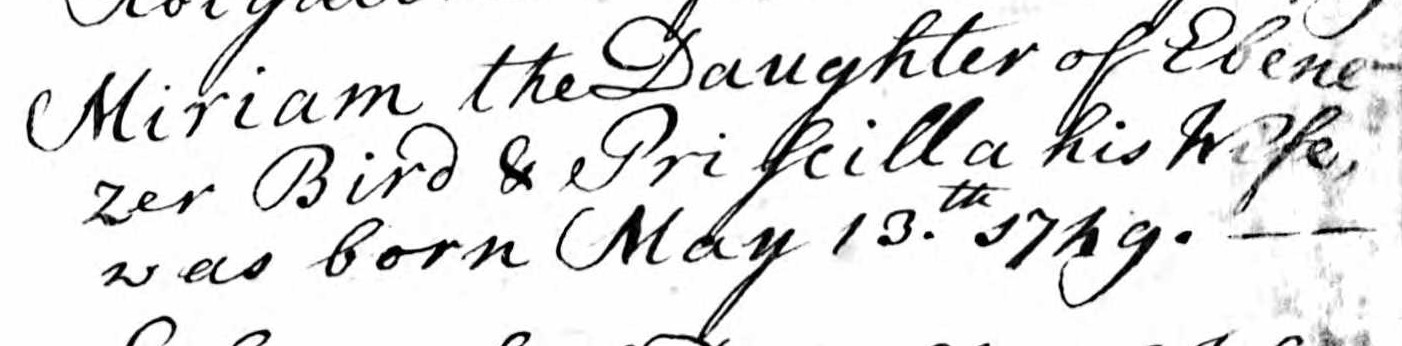 Miriam the Daughter of Ebene
zer Bird & Priſcilla his Wife,
was born May 13.th 1749. — —